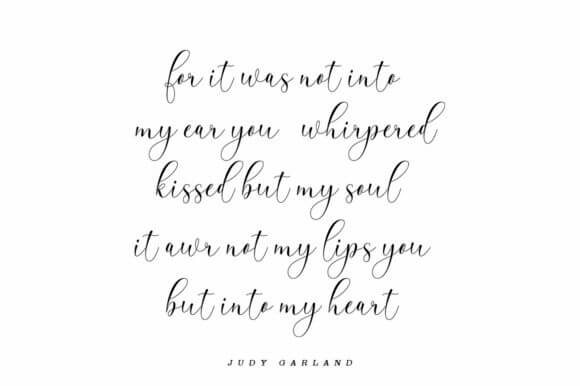 for it was not into
my ear you whirpered
kissed but my soul
it awr not my lips you
but into my heart
JUDY GARLAND